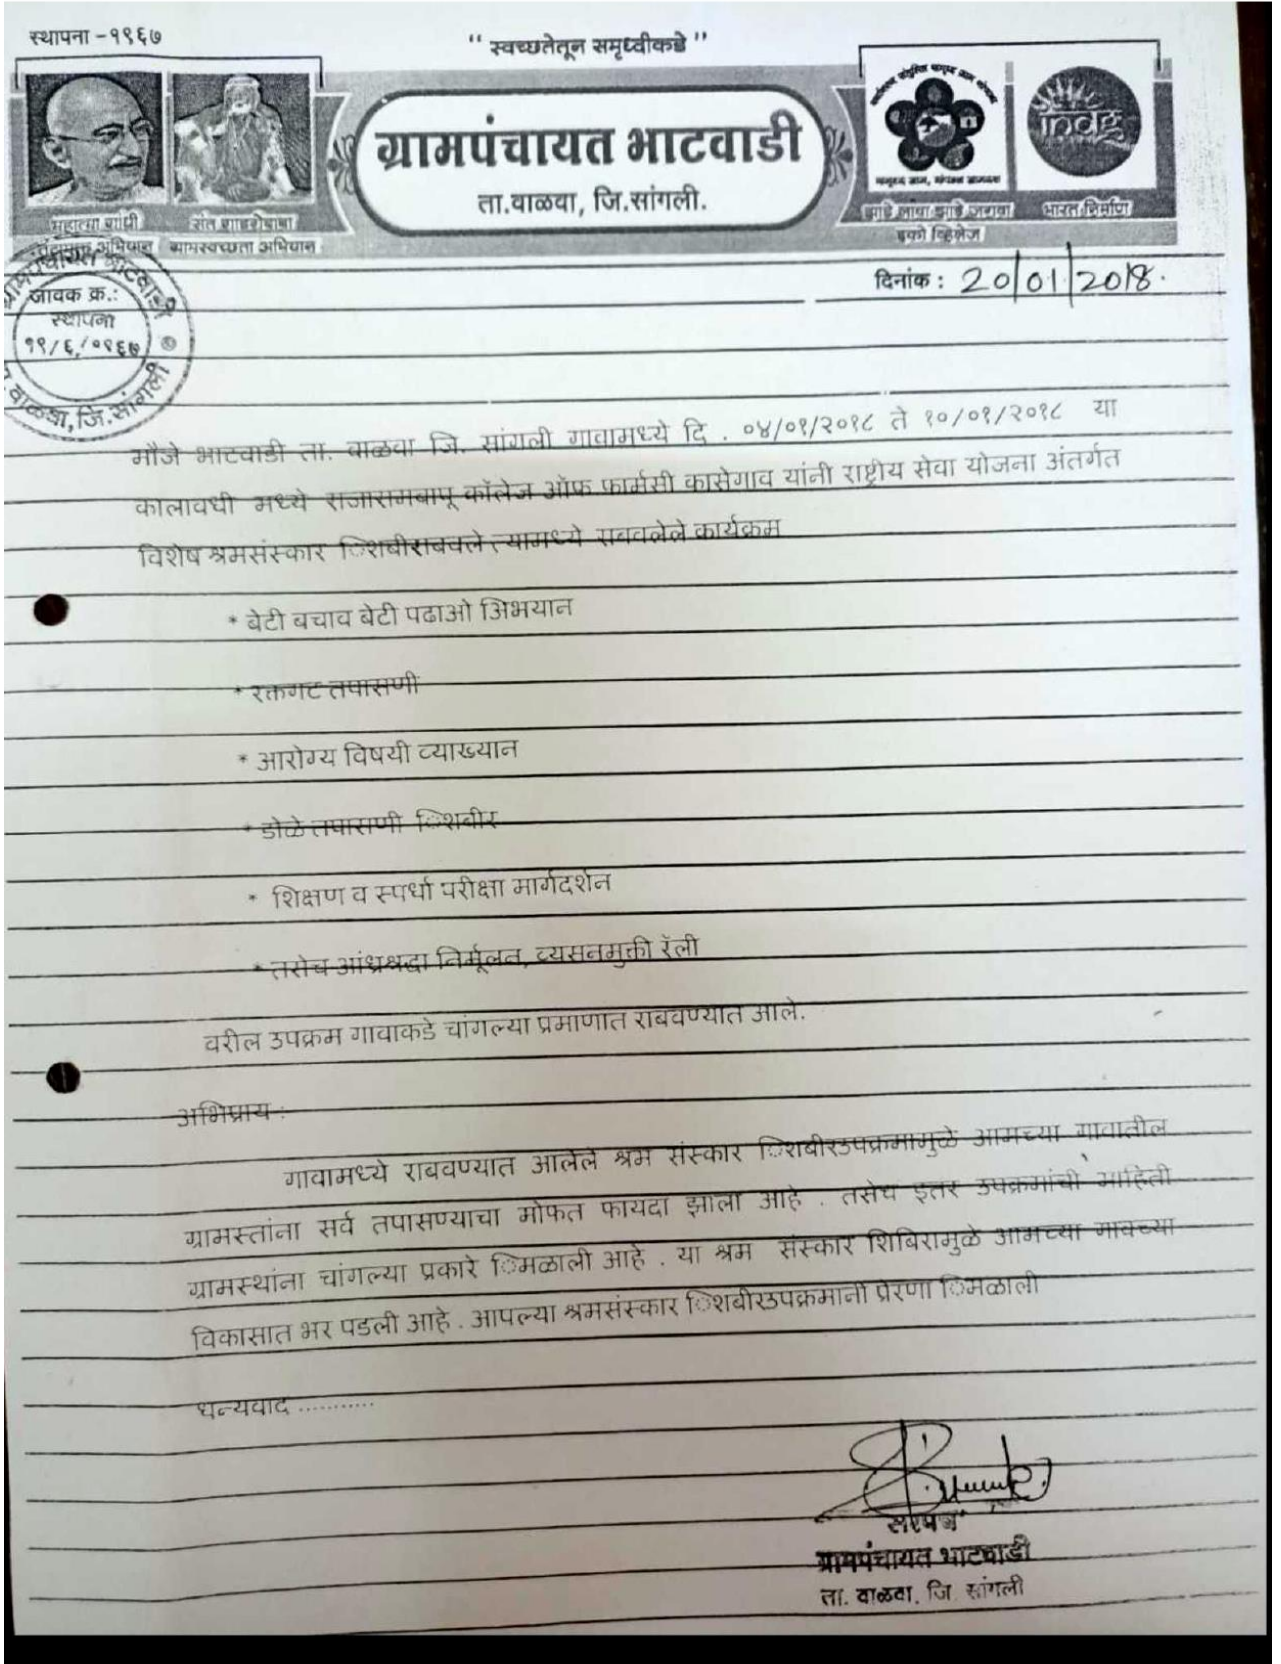 स्थापना -१९६७
“ स्वच्छतेतून समृध्दीकडे ”
ग्रामपंचायत भाटवाडी
ता.वाळवा, जि.सांगली.
महात्मा गांधी
तंटामुक्त अभियान
संत गाडगेबाबा
ग्रामस्वच्छता अभियान
समृध्द ग्राम, संपन्न ग्रामस्थ
झाडे लावा झाडे जगवा
इको व्हिलेज
भारत निर्माण
दिनांक : 20/01/2018.
ग्रामपंचायत भाटवाडी
जावक क्र.:
स्थापना
१९/६/१९६७
वाळवा, जि.सांगली
मौजे भाटवाडी ता. वाळवा जि. सांगली गावामध्ये दि . ०४/०१/२०१८ ते १०/०१/२०१८ या
कालावधी मध्ये राजारामबापू कॉलेज ऑफ फार्मसी कासेगाव यांनी राष्ट्रीय सेवा योजना अंतर्गत
विशेष श्रमसंस्कार िशबीराबवले त्यामध्ये राबवलेले कार्यक्रम
* बेटी बचाव बेटी पढाओ अिभयान
* रक्तगट तपासणी
* आरोग्य विषयी व्याख्यान
* डोळे तपासणी िशबीर
* शिक्षण व स्पर्धा परीक्षा मार्गदर्शन
* तसेच आंध्रश्रद्धा निर्मूलन, व्यसनमुक्ती रॅली
वरील उपक्रम गावाकडे चांगल्या प्रमाणात राबवण्यात आले.
अभिप्राय :
गावामध्ये राबवण्यात आलेले श्रम संस्कार िशबीरउपक्रमामुळे आमच्या गावातील
ग्रामस्तांना सर्व तपासण्याचा मोफत फायदा झाला आहे . तसेच इतर उपक्रमांची माहिती
ग्रामस्थांना चांगल्या प्रकारे िमळाली आहे . या श्रम संस्कार शिबिरामुळे आमच्या गावच्या
विकासात भर पडली आहे . आपल्या श्रमसंस्कार िशबीरउपक्रमानी प्रेरणा िमळाली
धन्यवाद ...........
सरपंच
ग्रामपंचायत भाटवाडी
ता. वाळवा. जि. सांगली